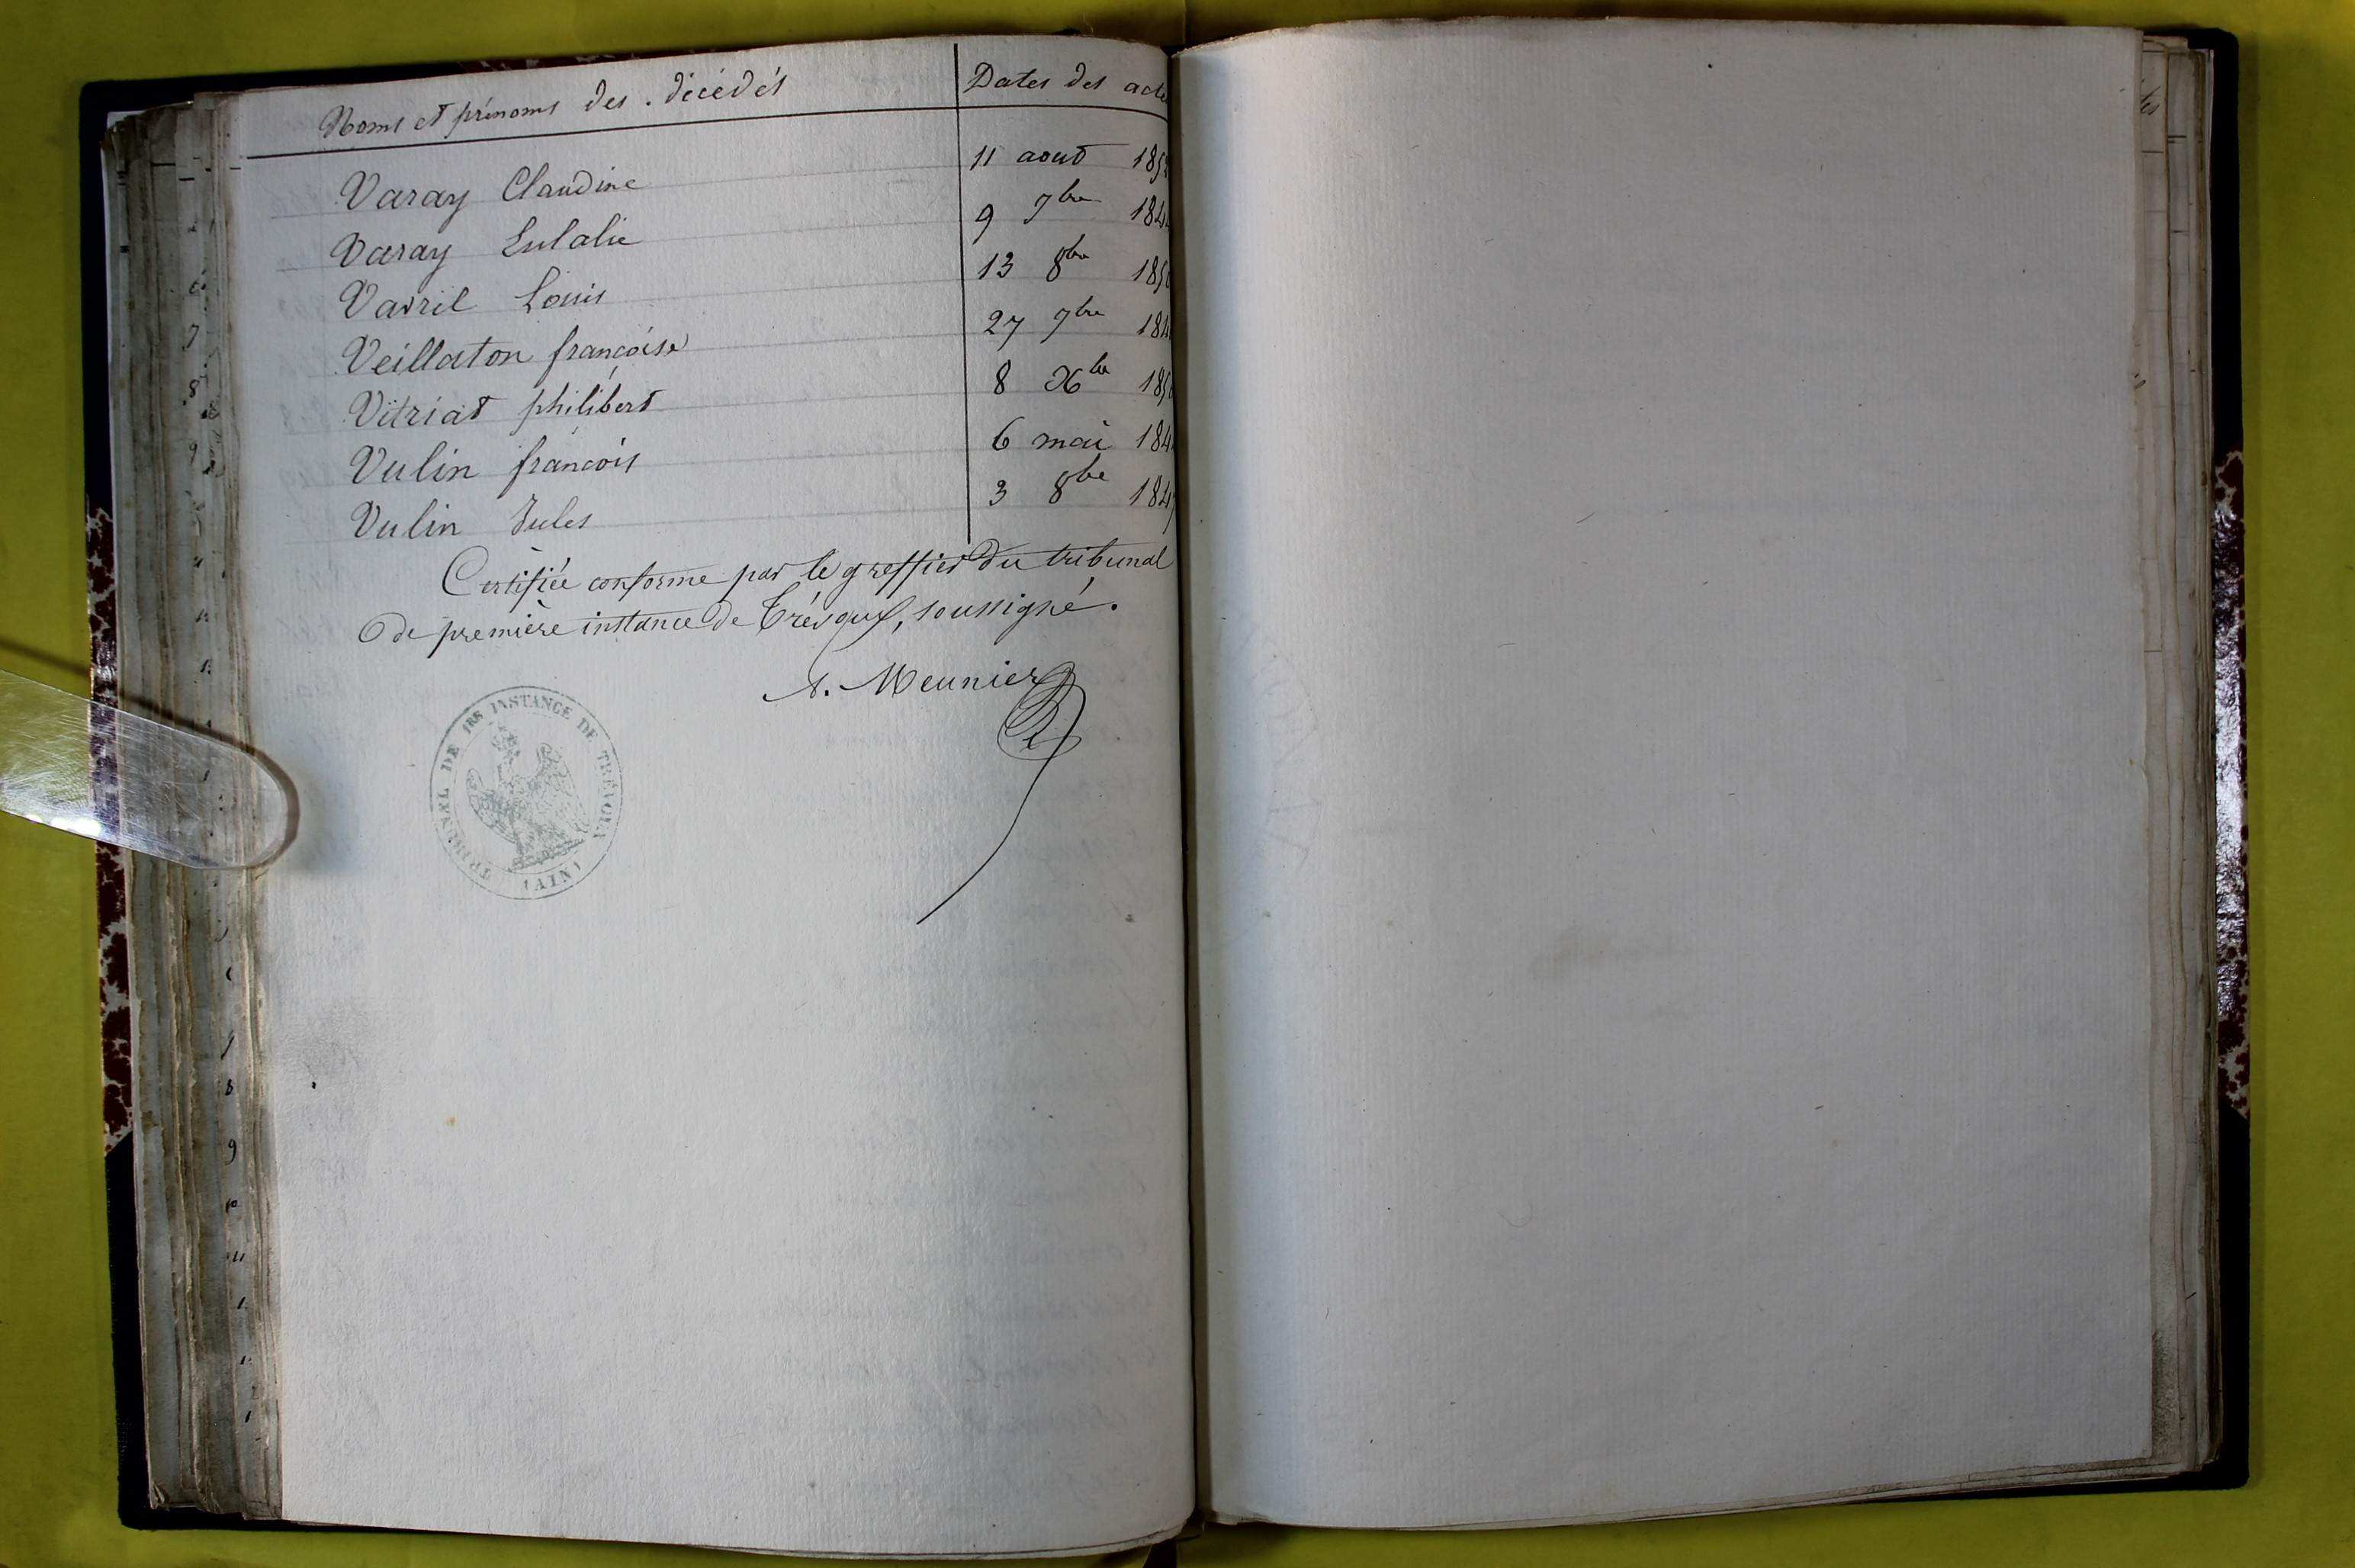 Noms et prénoms des décédés Dates des acte
Varay Claudine 11 aout 185
Varay Eulalie 9 7bre 184
Vavril Louis 13 8bre 185
Veillaton françoise 27 7bre 184
Vitriat philibert 8 Xbre 185
Vulin françois 6 mai 184
Vulin Jules 3 8bre 1847
Certifiée conforme par le greffier du tribunal
de première instance de Trévoux, soussigné.
A. Meunier
TRIBUNAL DE 1RE INSTANCE DE TRÉVOUX
(AIN)